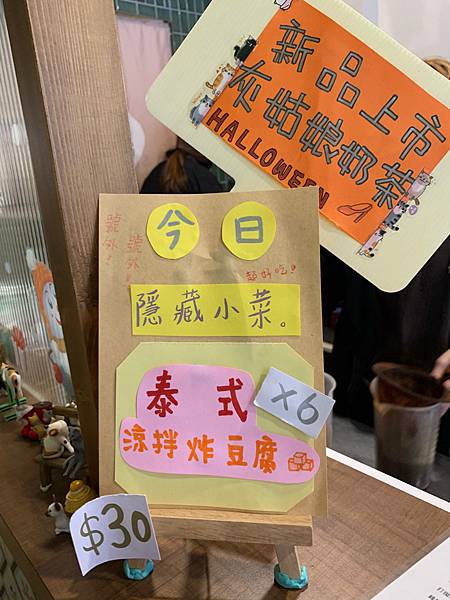 新品上市
灰姑娘奶茶
HALLOWEEN
號外!
號外!
今日
超好吃!
隱藏小菜。
泰式
x6
涼拌炸豆腐
$30